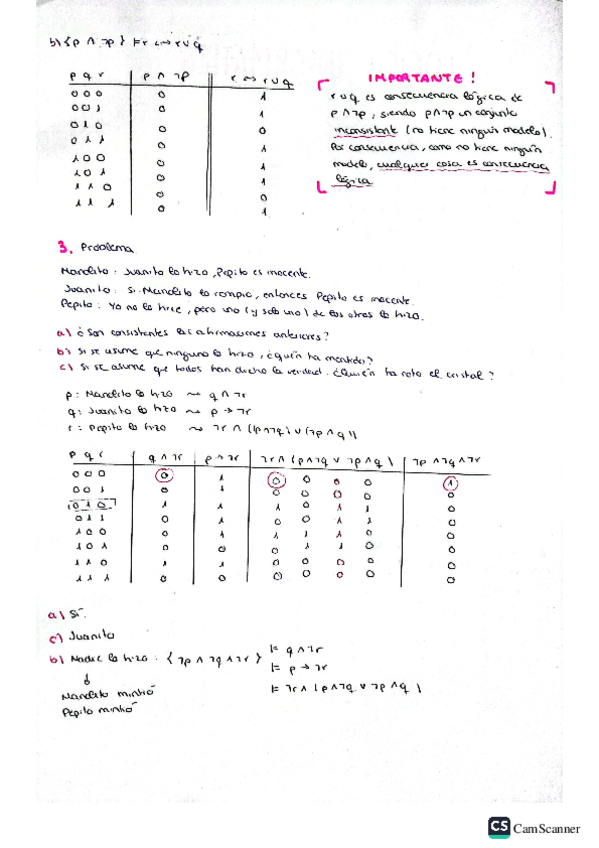 b) {p ∧ ¬p} ⊨ r ↔ r ∪ q
p q r | p ∧ ¬p | r ↔ r ∪ q
0 0 0 | 0 | 1
0 0 1 | 0 | 1
0 1 0 | 0 | 0
0 1 1 | 0 | 1
1 0 0 | 0 | 1
1 0 1 | 0 | 1
1 1 0 | 0 | 0
1 1 1 | 0 | 1
IMPORTANTE!
r ∪ q es consecuencia lógica de
p ∧ ¬p, siendo p∧¬p un conjunto
inconsistente (no tiene ningún modelo).
Por consecuencia, como no tiene ningún
modelo, cualquier cosa es consecuencia
lógica
3. Problema
Manolito: Juanito lo hizo, Pepito es inocente.
Juanito: Si Manolito lo rompió, entonces Pepito es inocente.
Pepito: Yo no lo hice, pero uno (y solo uno) de los otros lo hizo.
a) ¿Son consistentes las afirmaciones anteriores?
b) Si se asume que ninguno lo hizo, ¿quién ha mentido?
c) Si se asume que todos han dicho la verdad. ¿Quién ha roto el cristal?
p: Manolito lo hizo ⇝ q ∧ ¬r
q: Juanito lo hizo ⇝ p → ¬r
r: Pepito lo hizo ⇝ ¬r ∧ ((p∧¬q) ∨ (¬p ∧ q))
p q r | q ∧ ¬r | p → ¬r | ¬r ∧ (p ∧ ¬q ∨ ¬p ∧ q) | ¬p ∧ ¬q ∧ ¬r
0 0 0 | 0 | 1 | 0 0 0 0 | 1
0 0 1 | 0 | 1 | 0 0 0 0 | 0
0 1 0 | 1 | 1 | 1 0 1 1 | 0
0 1 1 | 0 | 1 | 0 0 1 1 | 0
1 0 0 | 0 | 1 | 1 1 1 0 | 0
1 0 1 | 0 | 0 | 0 1 1 0 | 0
1 1 0 | 1 | 1 | 0 0 0 0 | 0
1 1 1 | 0 | 0 | 0 0 0 0 | 0
a) Sí
c) Juanito
b) Nadie lo hizo: {¬p ∧ ¬q ∧ ¬r} ⊨ q ∧ ¬r
⊨ p → ¬r
⊨ ¬r ∧ (p ∧ ¬q ∨ ¬p ∧ q)
Manolito mintió
Pepito mintió
CS CamScanner